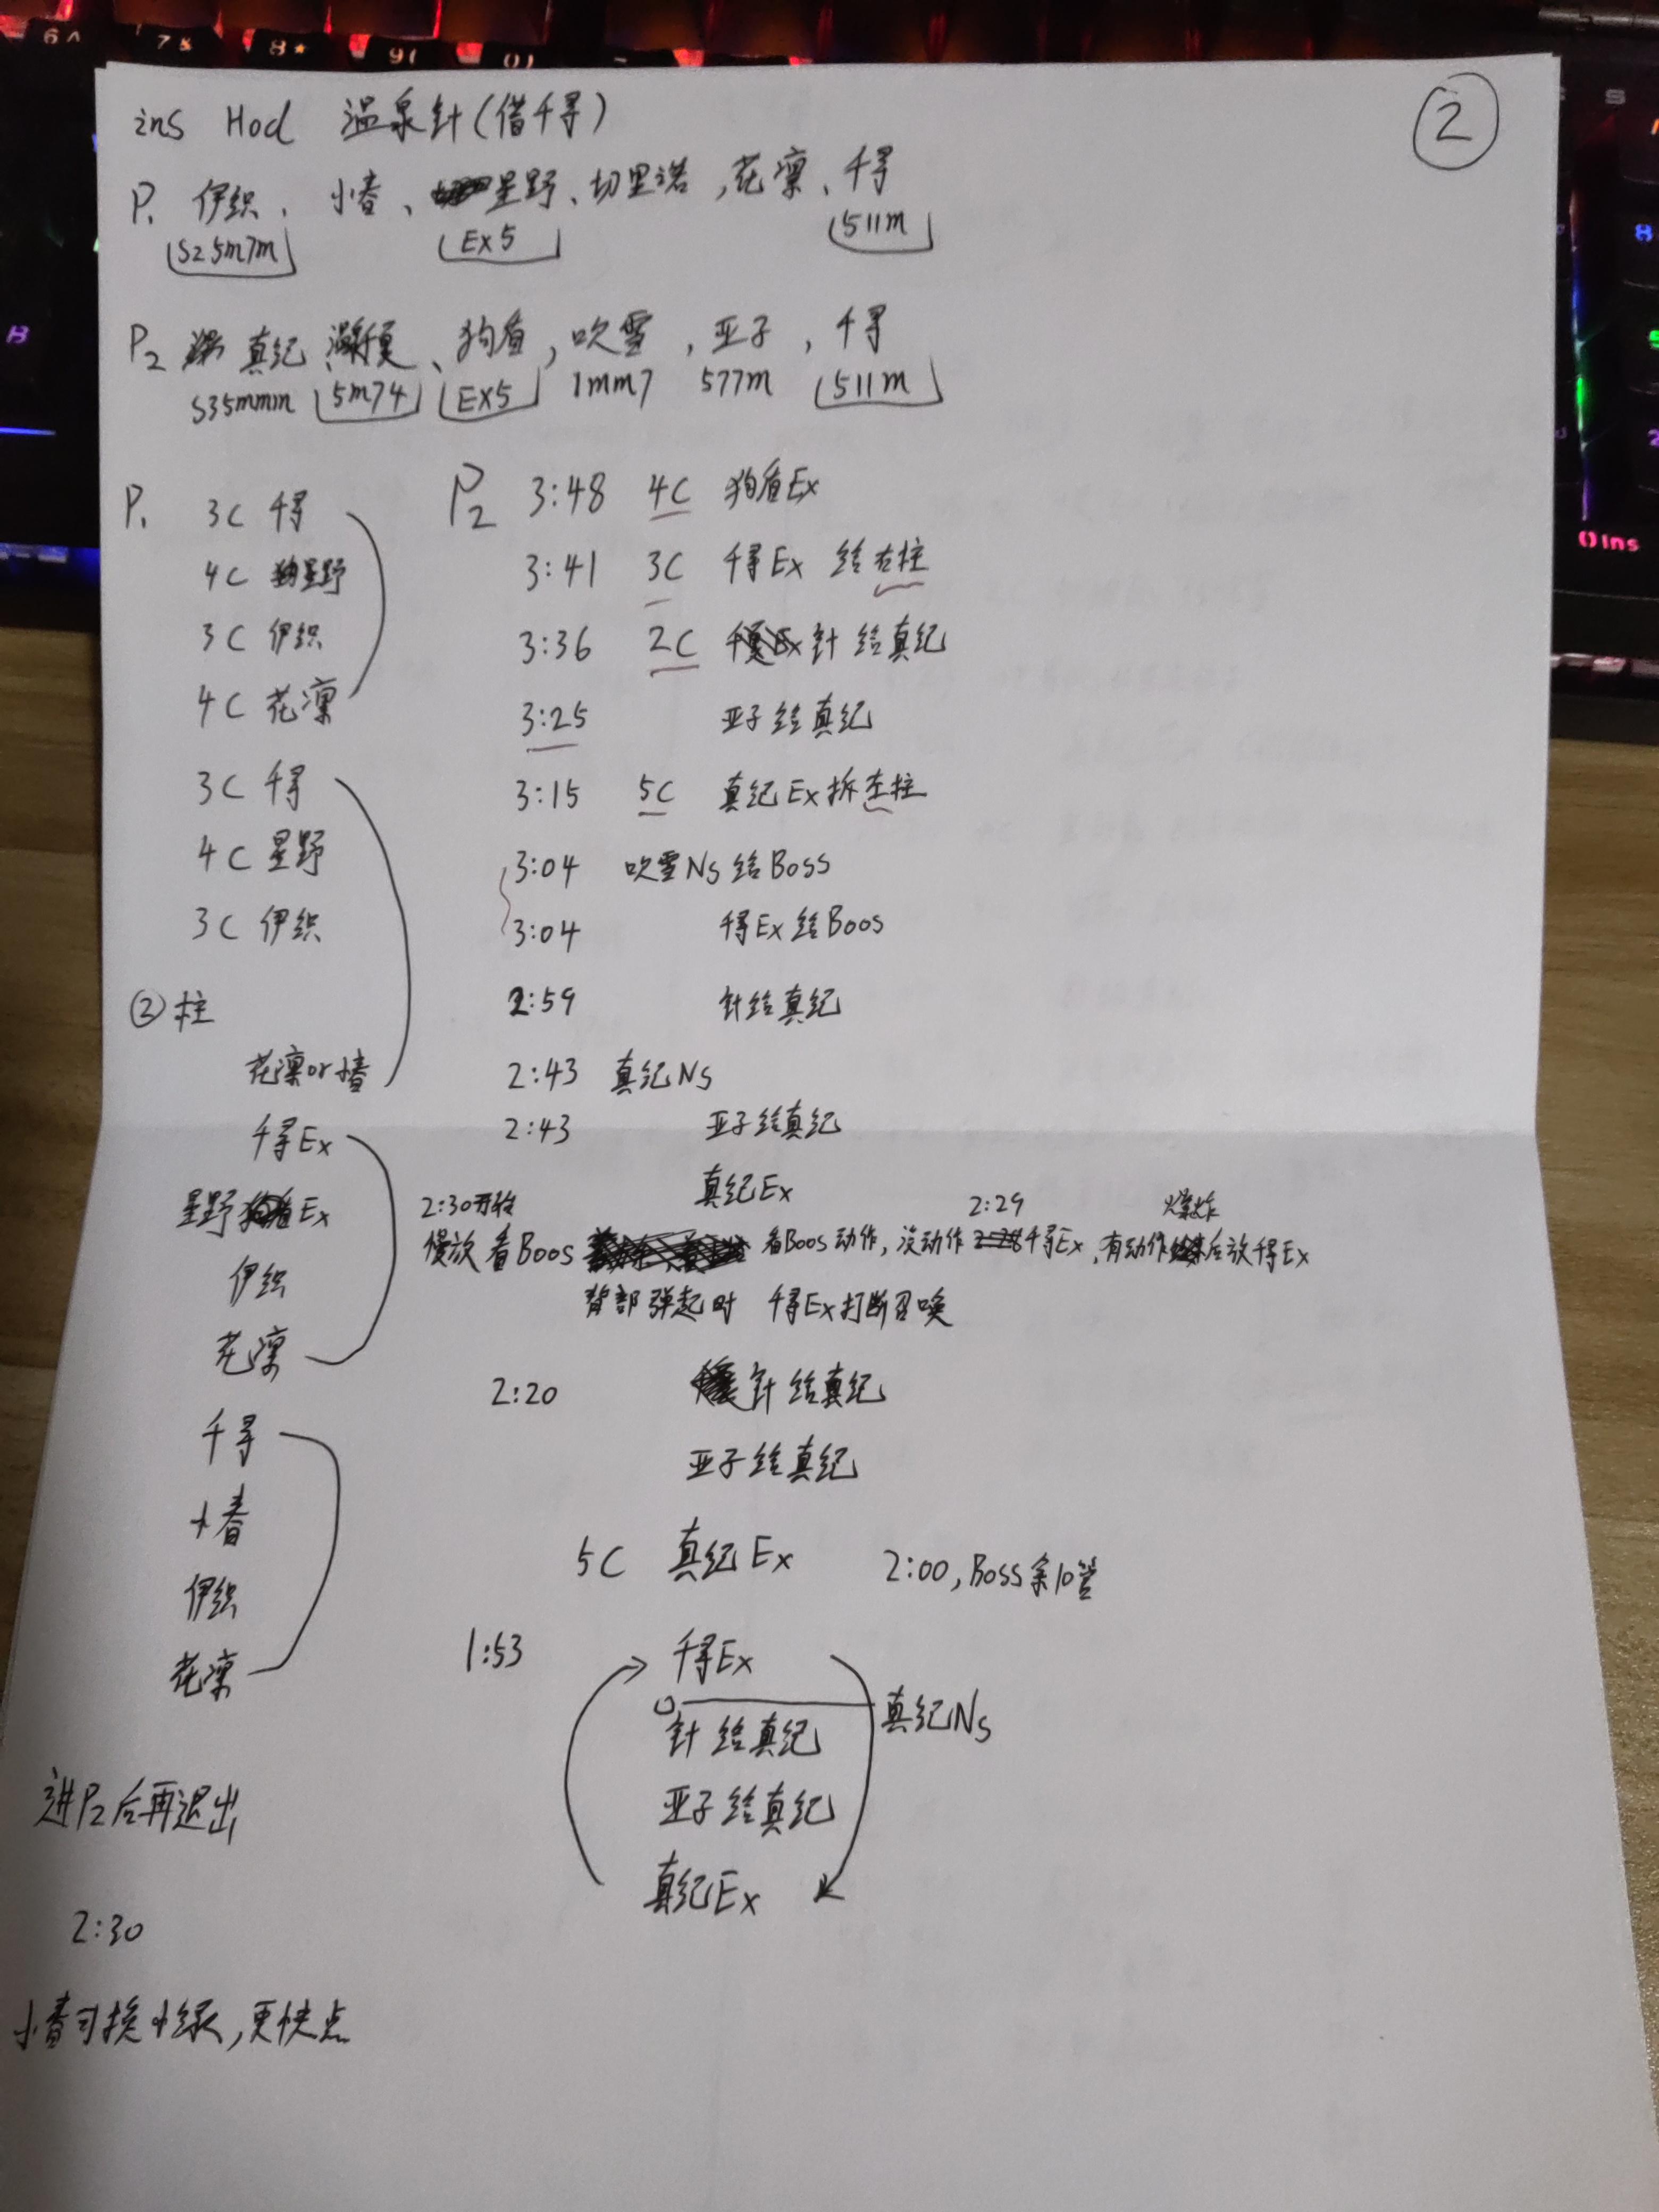 ②
ins Hod 温泉针(借千寻)
P1 伊织、小春、星野、切里诺,花凛、千寻
S25m7m EX5 511m
P2 真纪、狗香,吹雪,亚子,千寻
S35mmm 5m74 EX5 1mm7 577m 511m
P1
3C 千寻
4C 星野
3C 伊织
4C 花凛
3C 千寻
4C 星野
3C 伊织
②柱
花凛or小春
千寻Ex
星野Ex
伊织
花凛
千寻
小春
伊织
花凛
进P2后再退出
2:30
小春可换小绿,更快点
P2 3:48 4C 狗香Ex
3:41 3C 千寻Ex 给右柱
3:36 2C 针给真纪
3:25 亚子给真纪
3:15 5C 真纪Ex拆左柱
3:04 吹雪Ns给Boss
3:04 千寻Ex给Boos
2:59 针给真纪
2:43 真纪Ns
2:43 亚子给真纪
真纪Ex
2:30开始 2:29 爆炸
慢放看Boos 看Boos动作,没动作千寻Ex,有动作后放千寻Ex
背部弹起时 千寻Ex打断召唤
2:20 针给真纪
亚子给真纪
5C 真纪Ex 2:00,Boss余10管
1:53 千寻Ex
真纪Ns
针给真纪
亚子给真纪
真纪Ex
6^
7&
8*
9(
0)
B
8
5
2
0ins
S